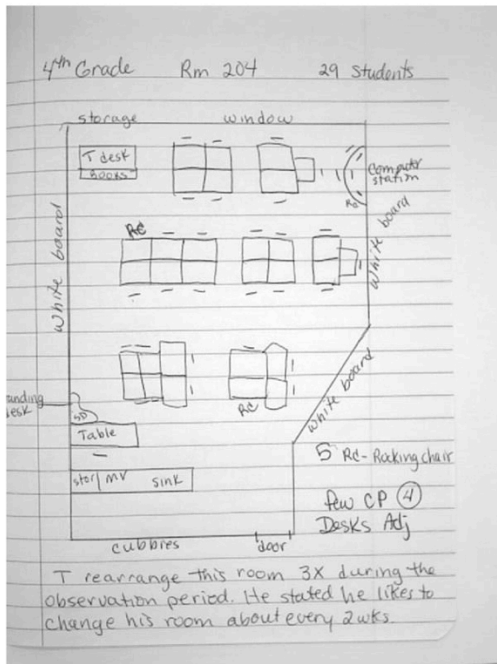 4th Grade Rm 204 29 Students
storage window
T desk
BOOKS
computer station
RC
white board
RC
white board
white board
RC
anding
esk
SD
Table
stor MV sink
5 RC - Rocking chair
few CP 4
Desks Adj
cubbies door
T rearrange this room 3X during the
observation period. He stated he likes to
change his room about every 2wks.